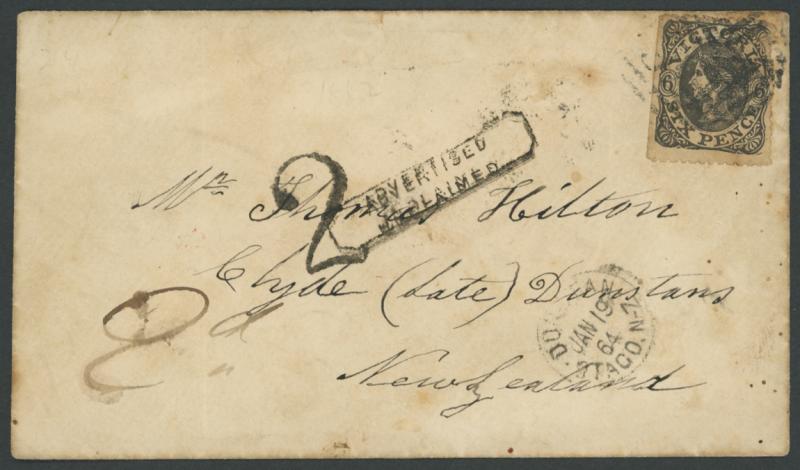 VICTORIA
6 6
SIX PENCE
2
ADVERTISED
UNCLAIMED
Mr. Thomas Hilton
Clyde (late) Dunstans
New Zealand
JAN 19
64
OTAGO. N.Z
8d